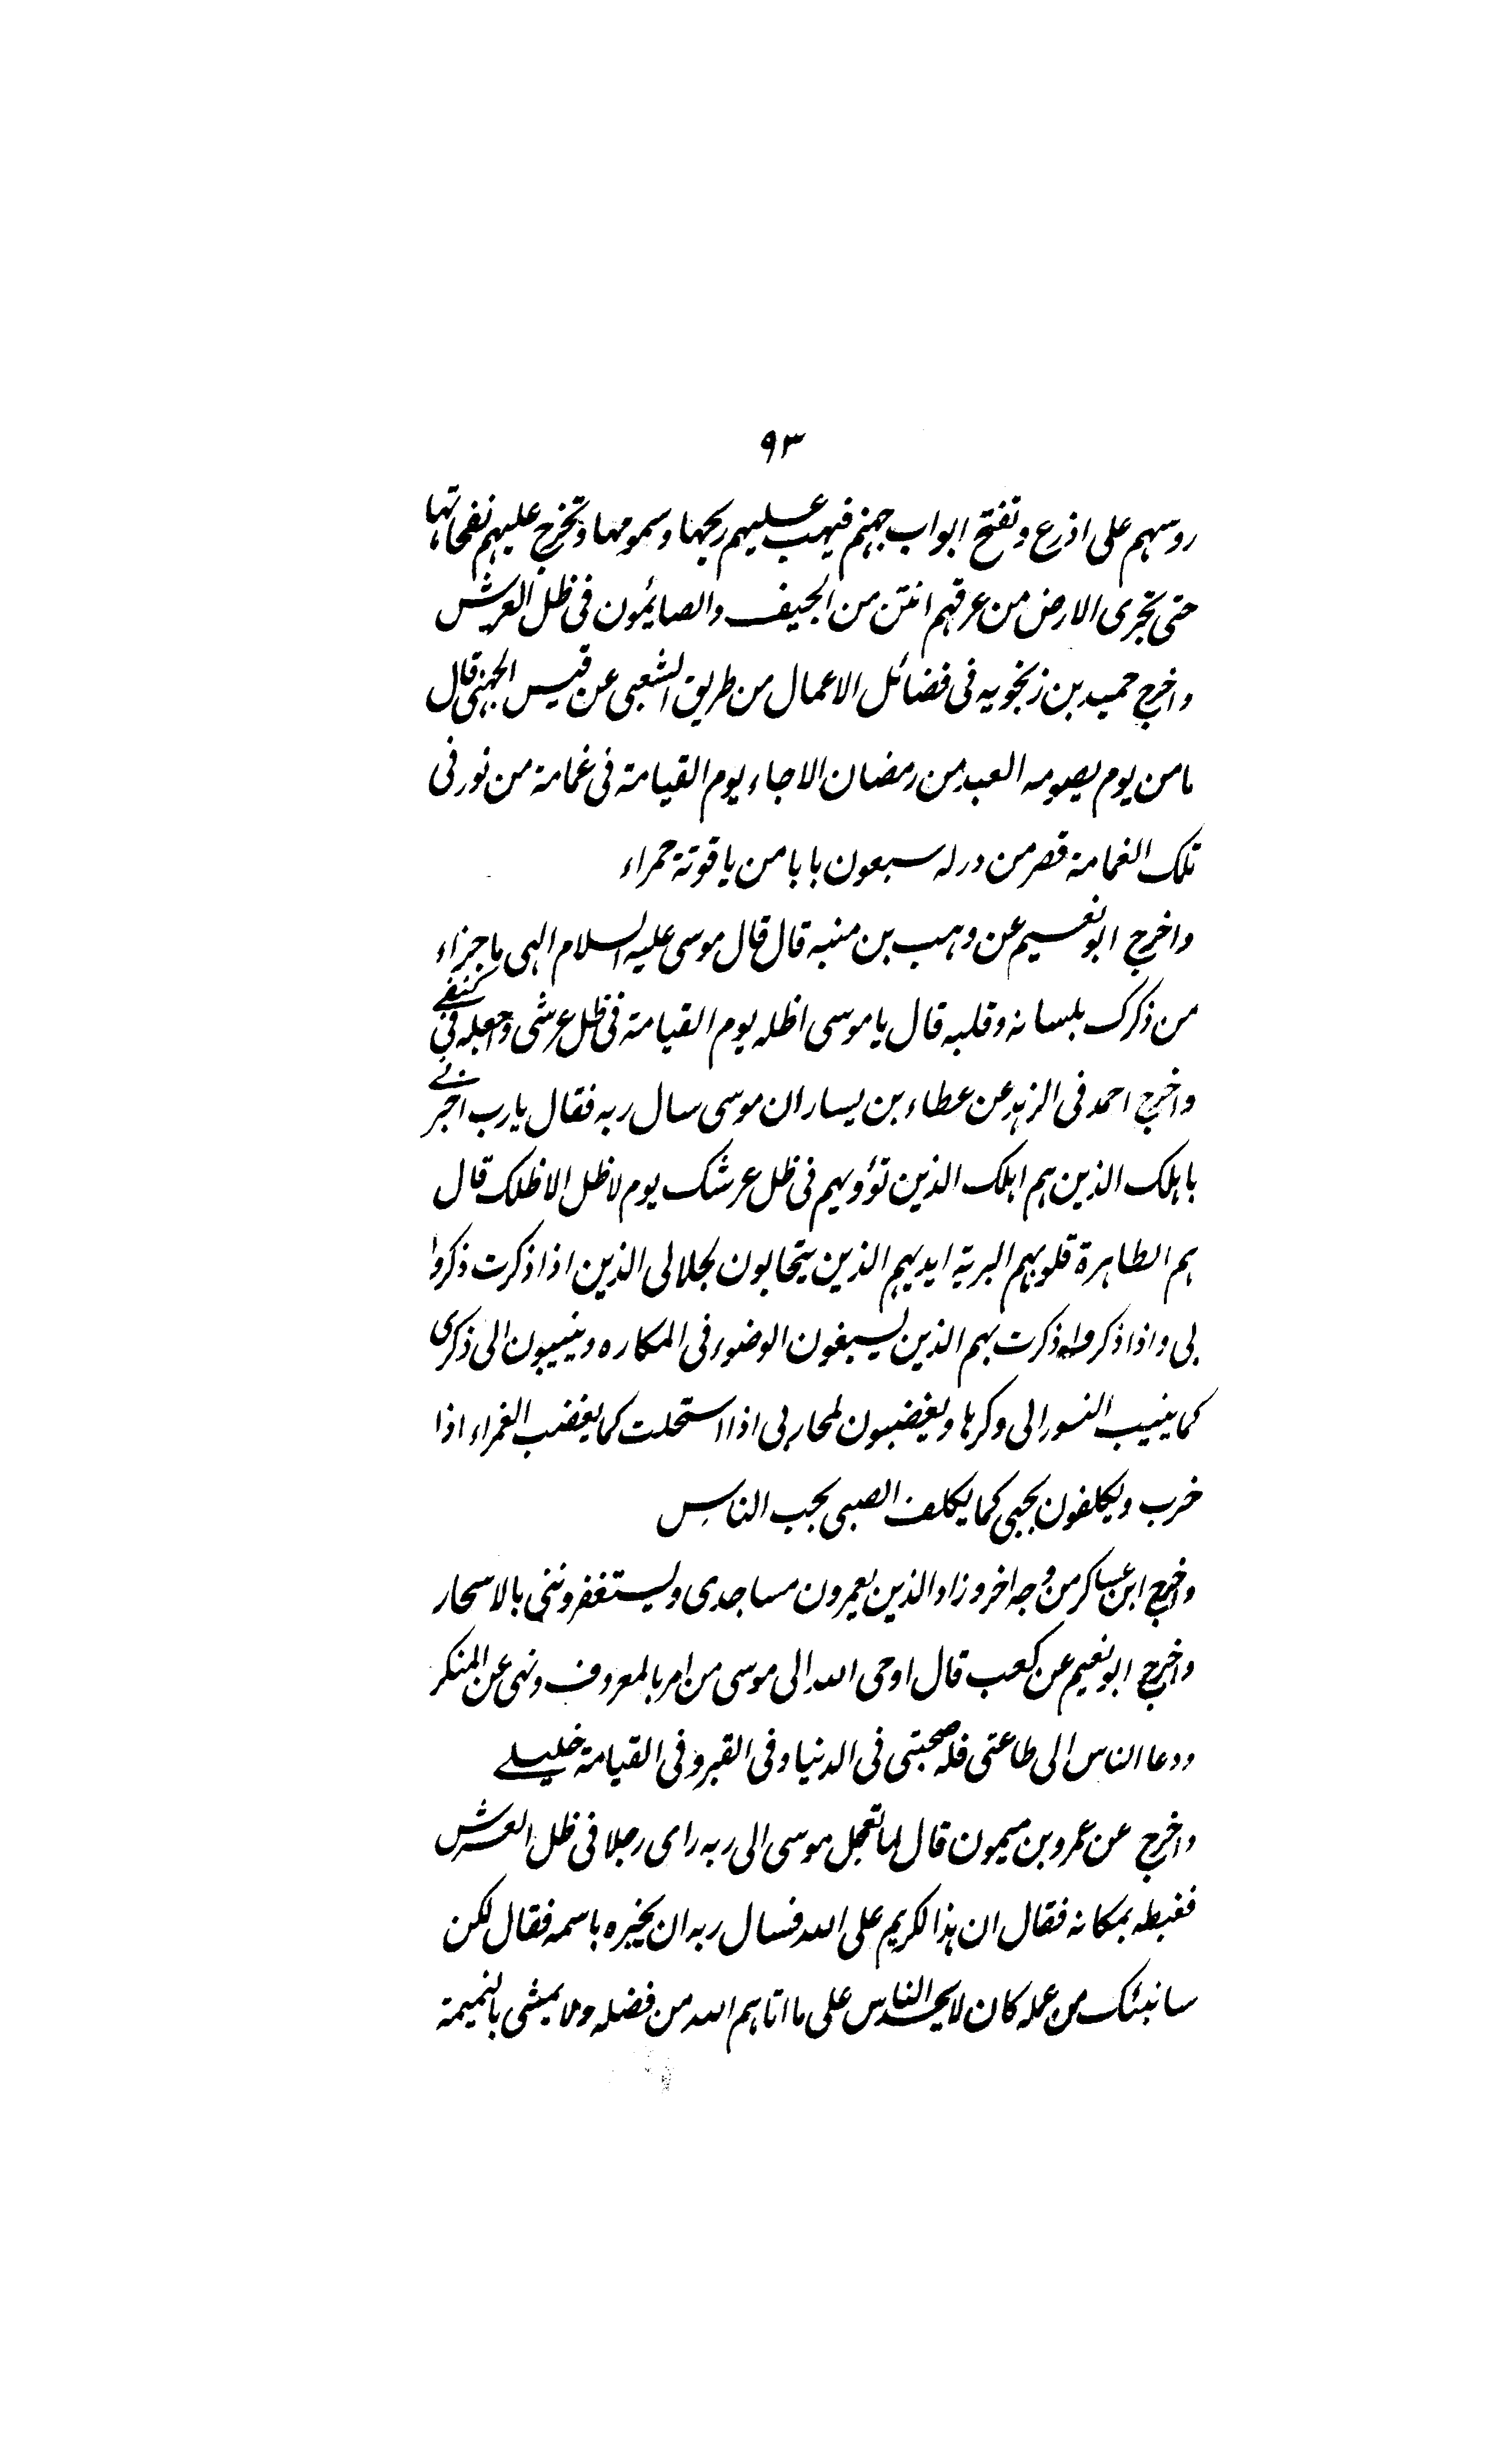 ٩٣
روسهم على اذرع وتفتح ابواب جهنم فيهب عليهم ريحها وسمومها وتخرج عليهم نفحاتها
حتى تجرى الارض من عرقهم انتن من الجيف والصائمون فى ظل العرش
واخرج حميد بن زنجويه فى فضائل الاعمال من طريق الشعبى عن قيس الجهنى قال
مامن يوم يصومه العبد من رمضان الا جاء يوم القيامة فى غمامة من نور فى
تلك الغمامة قصر من در له سبعون بابا من ياقوتة حمراء
واخرج ابو نعيم عن وهب بن منبه قال قال موسى عليه السلام الهى ما جزاء
من ذكرك بلسانه وقلبه قال يا موسى اظله يوم القيامة فى ظل عرشى واجعله فى كنفى
واخرج احمد فى الزهد عن عطاء بن يسار ان موسى سال ربه فقال يارب اخبرنى
باهلك الذين هم اهلك الذين تؤويهم فى ظل عرشك يوم لا ظل الا ظلك قال
هم الطاهرة قلوبهم البرية ايديهم الذين يتحابون بجلالى الذين اذا ذكرت ذكروا
بى واذا ذكروا ذكرت بهم الذين يسبغون الوضوء فى المكاره وينيبون الى ذكرى
كما ينيب النسور الى وكرها ويغضبون لمحاربى اذا استحلت كما يغضب الغراء اذا
خرب ويكلفون بحبى كما يكلف الصبى بحب الناس
واخرج ابن عساكر من وجه اخر وزاد الذين يعمرون مساجدى ويستغفروننى بالاسحار
واخرج ابو نعيم عن كعب قال اوحى الله الى موسى من امر بالمعروف ونهى عن المنكر
ودعا الناس الى طاعتى فله صحبتى فى الدنيا وفى القبر وفى القيامة خليلى
واخرج عن عمرو بن ميمون قال لما تعجل موسى الى ربه راى رجلا فى ظل العرش
فغبطه بمكانه فقال ان هذا لكريم على الله فسال ربه ان يخبره باسمه فقال لكن
سانبئك من عمله كان لا يحسد الناس على ما اتاهم الله من فضله ولا يمشى بالنميمة